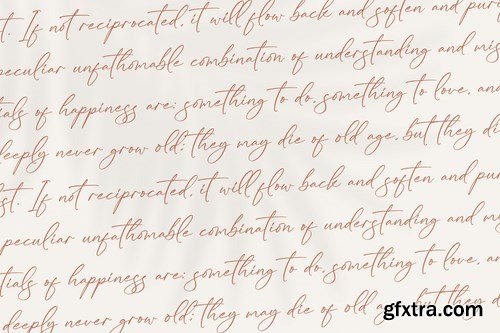 st. If not reciprocated, it will flow back and soften and puri
peculiar unfathomable combination of understanding and mis
tials of happiness are: something to do, something to love, and
deeply never grow old; they may die of old age, but they di
st. If not reciprocated, it will flow back and soften and puri
peculiar unfathomable combination of understanding and mis
tials of happiness are: something to do, something to love, an
deeply never grow old; they may die of old age, but they di
gfxtra.com